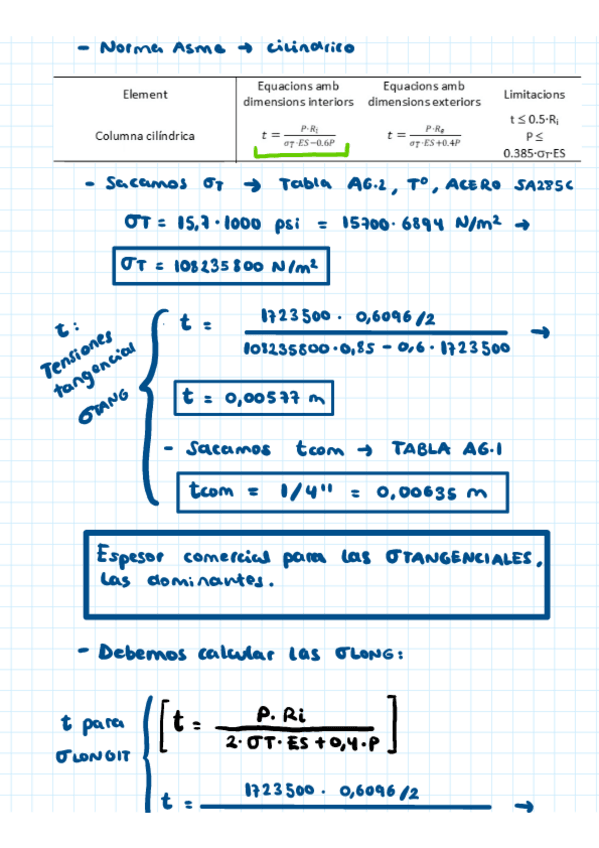 - Norma Asme → cilindrico
Element Equacions amb dimensions interiors Equacions amb dimensions exteriors Limitacions
Columna cilíndrica t = P·Ri / σT·ES−0.6P t = P·Re / σT·ES+0.4P t ≤ 0.5·Ri P ≤ 0.385·σT·ES
- Sacamos σT → Tabla A6.2, Tº, ACERO SA285C
σT = 15,7 · 1000 psi = 15700 · 6894 N/m² →
σT = 108235800 N/m²
t: Tensiones tangencial σTANG
t = 1723500 · 0,6096/2 / 108235800 · 0,85 − 0,6 · 1723500 →
t = 0,00577 m
- Sacamos tcom → TABLA A6.1
tcom = 1/4" = 0,00635 m
Espesor comercial para las σTANGENCIALES,
las dominantes.
- Debemos calcular las σLONG:
t para σLONGIT
[t = P. Ri / 2·σT·ES+0,4·P]
t = 1723500 · 0,6096/2 →